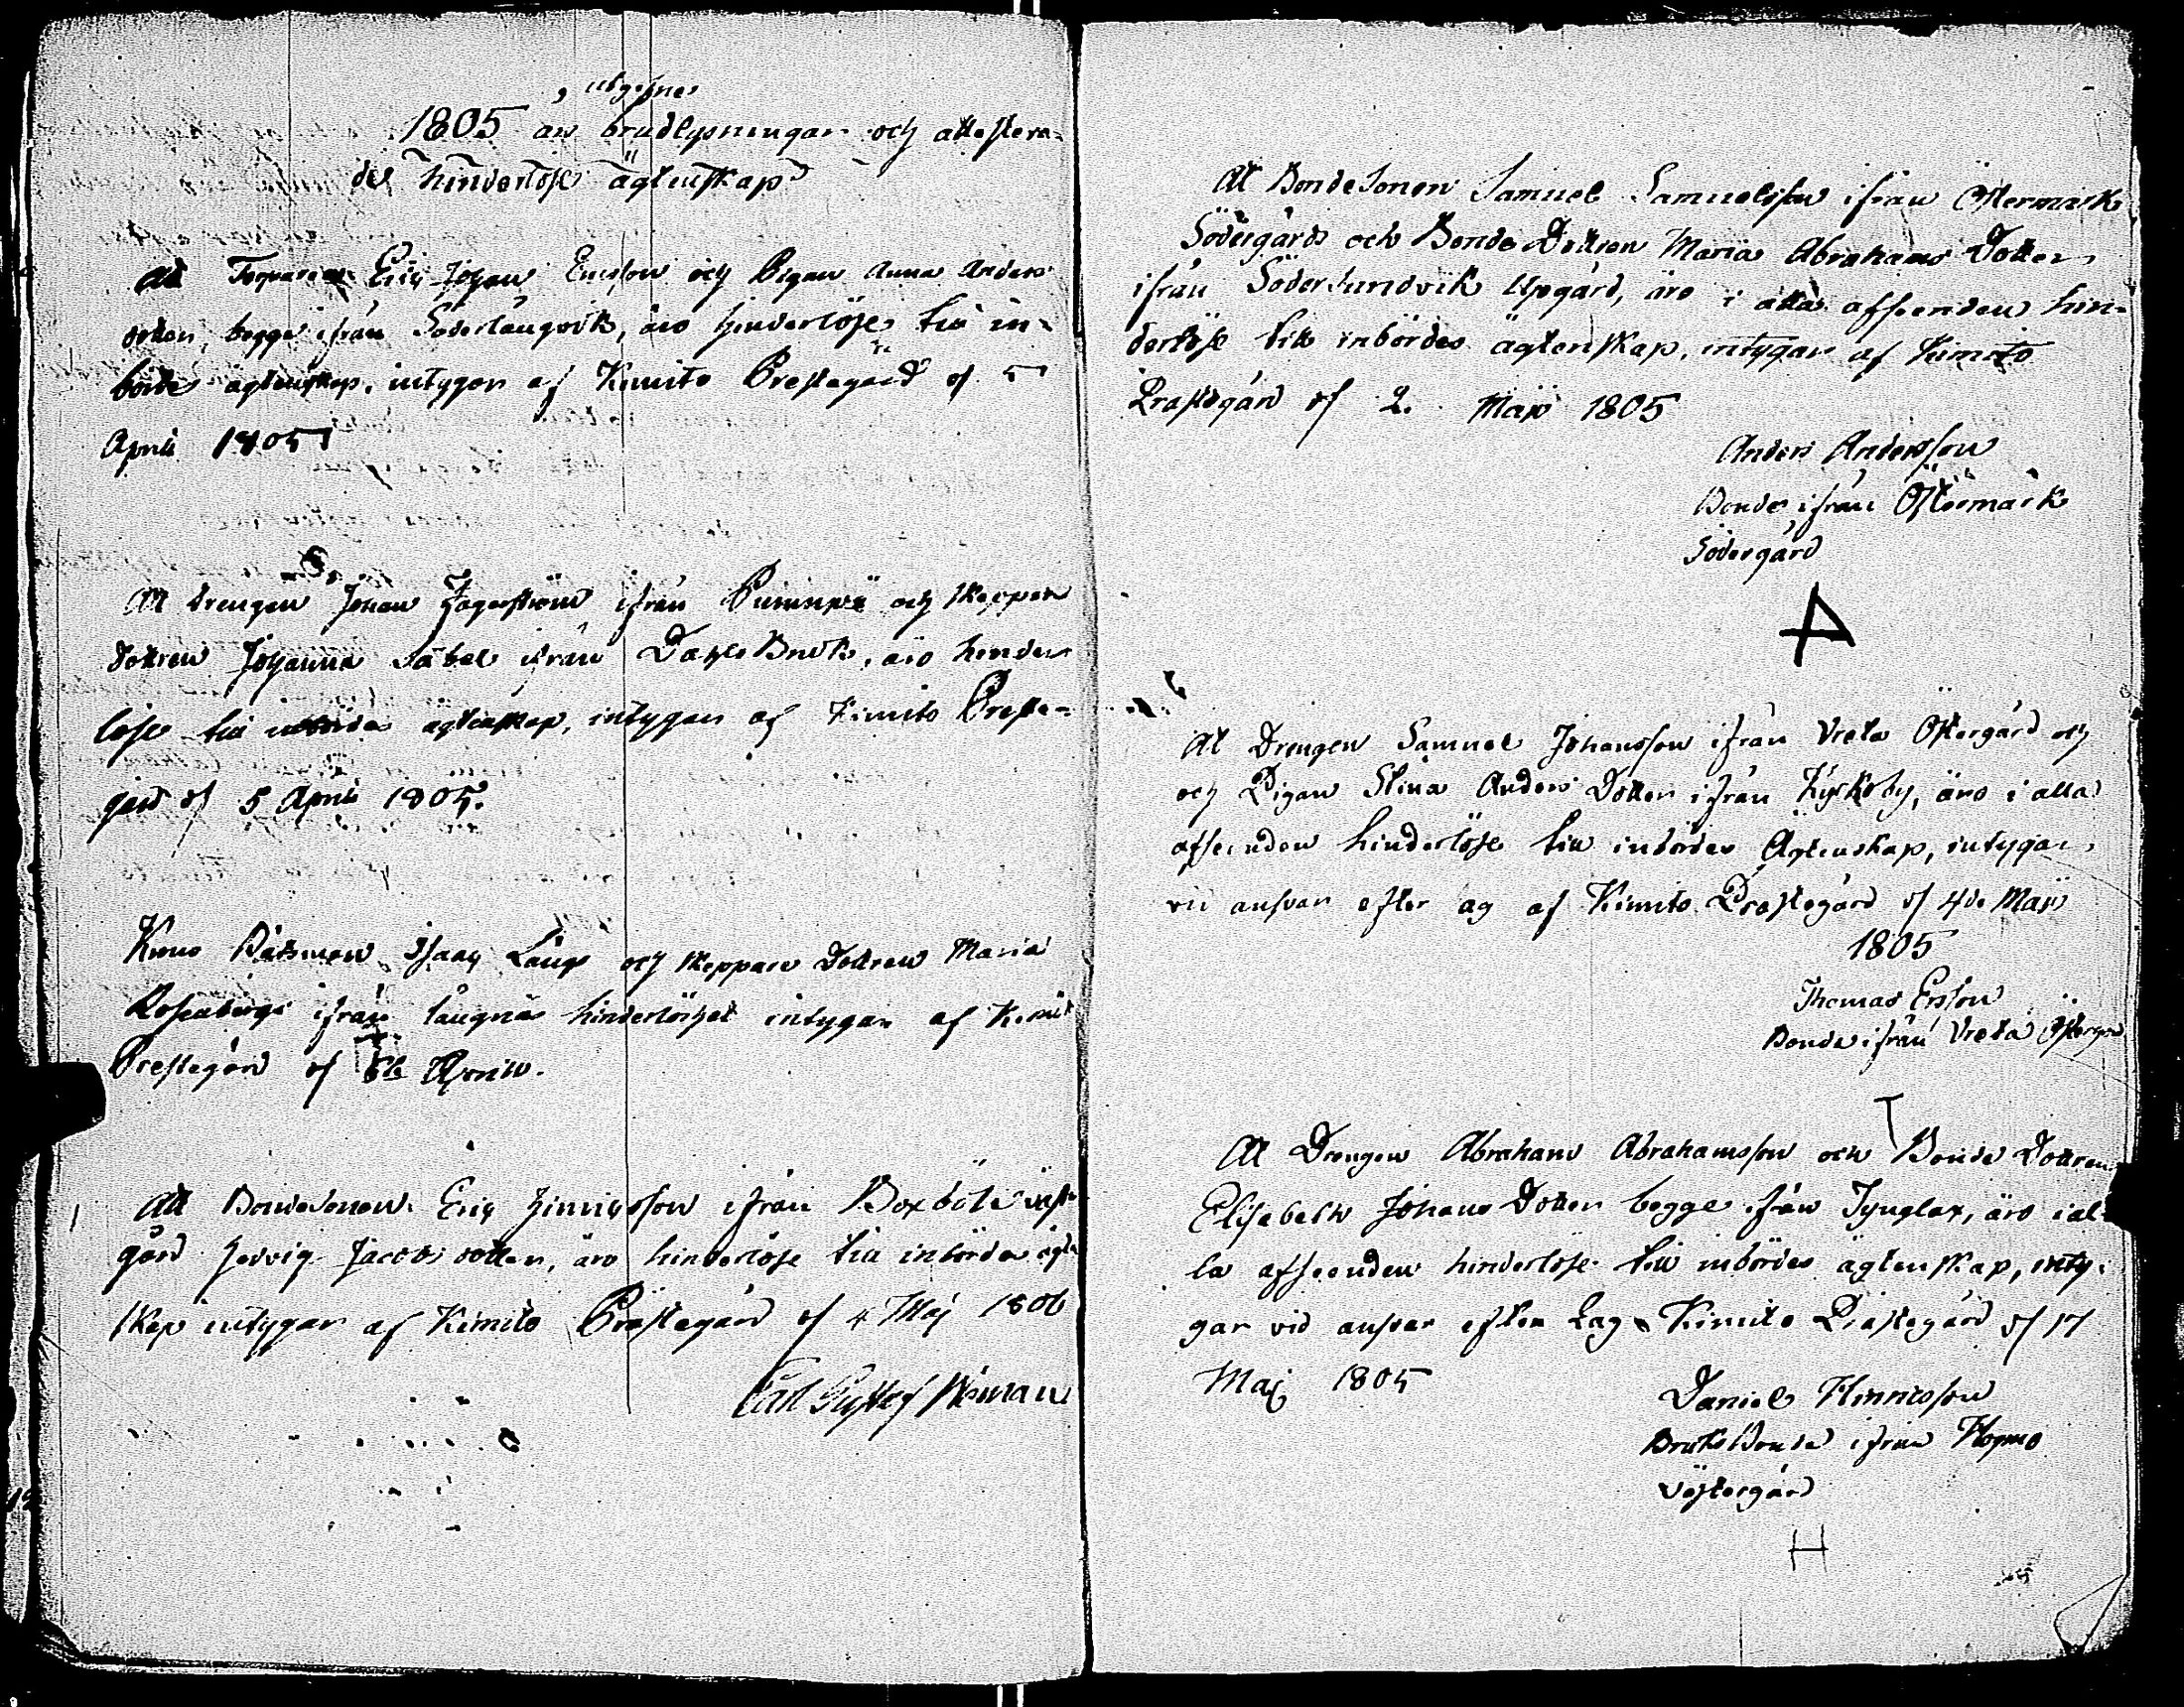 utgifne
1805 års brudlysningar och attestera-
de hinderlöse ägtenskap
Att Torparen Eric Johan Ericsson och Pigan Anna Anders
dotter, begge ifrån Söderlångvik, äro hinderlöse till in-
bördes ägtenskap, intygar af Kimito Prestegård d. 5
April 1805
Att drengen Johan Fagerström ifrån och Skeppar
dottren Johanna Sabel ifrån Dahls Bruk, äro hinder
löse till inbördes ägtenskap, intygar af Kimito Preste-
gård d. 5 April 1805.
Krono Båtsman Isaac Lång och Skeppare Dottren Maria
Rosenberg ifrån Långnäs hinderlöshet intygar af Kimit
Prestegård d. April.
Att Bondesonen Eric Hinricsson ifrån Boxböle väst
gård Hedvig Jacobs dotter, äro hinderlöse till inbördes ägte
skap intygar af Kimito Prästegård d. 4 Maj 1806
Carl Gustaf
At BondeSonen Samuel Samuelsson ifrån Östermark
Södergårds och Bonde Dottren Maria Abrahams Dotter
ifrån Södersundvik Uppgård, äro i alla afseenden hin-
derlöse till inbördes ägtenskap, intygar af Kimito
Prästgård d. 2. Maji 1805
Anders Andersson
Bonde ifrån Östermark
Södergård
A
At Drengen Samuel Johansson ifrån Vreta Östergård och
och Pigan Stina Anders Dotter ifrån Kyrkoby, äro i alla
afseenden hinderlöse till inbördes Ägtenskap, intygar
vid ansvar efter lag af Kimito Prästegård d. 4de Maji
1805
Thomas Ersson
Bonde ifrån Vreta Östergrd
T
Att Drengen Abraham Abrahamsson och Bonde Dottren
Elisabeth Johans Dotter begge ifrån Tynglax, äro i al-
la afseenden hinderlöse till inbördes ägtenskap, inty-
gar vid ansvar efter Lag Kimito Prästegård d. 17
Maj 1805
Daniel Hinricsson
Bruks Bonde ifrån
Västergård
H